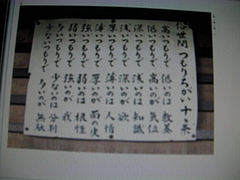 俗世間つもりちがい十ヶ条
高いつもりで 低いのは 教養
低いつもりで 高いのが 気位
深いつもりで 浅いのは 知識
浅いつもりで 深いのが 欲
厚いつもりで 薄いのは 人情
薄いつもりで 厚いのが 面の皮
強いつもりで 弱いのは 根性
弱いつもりで 強いのが 我
多いつもりで 少ないのは 分別
少ないつもりで 多いのが 無駄